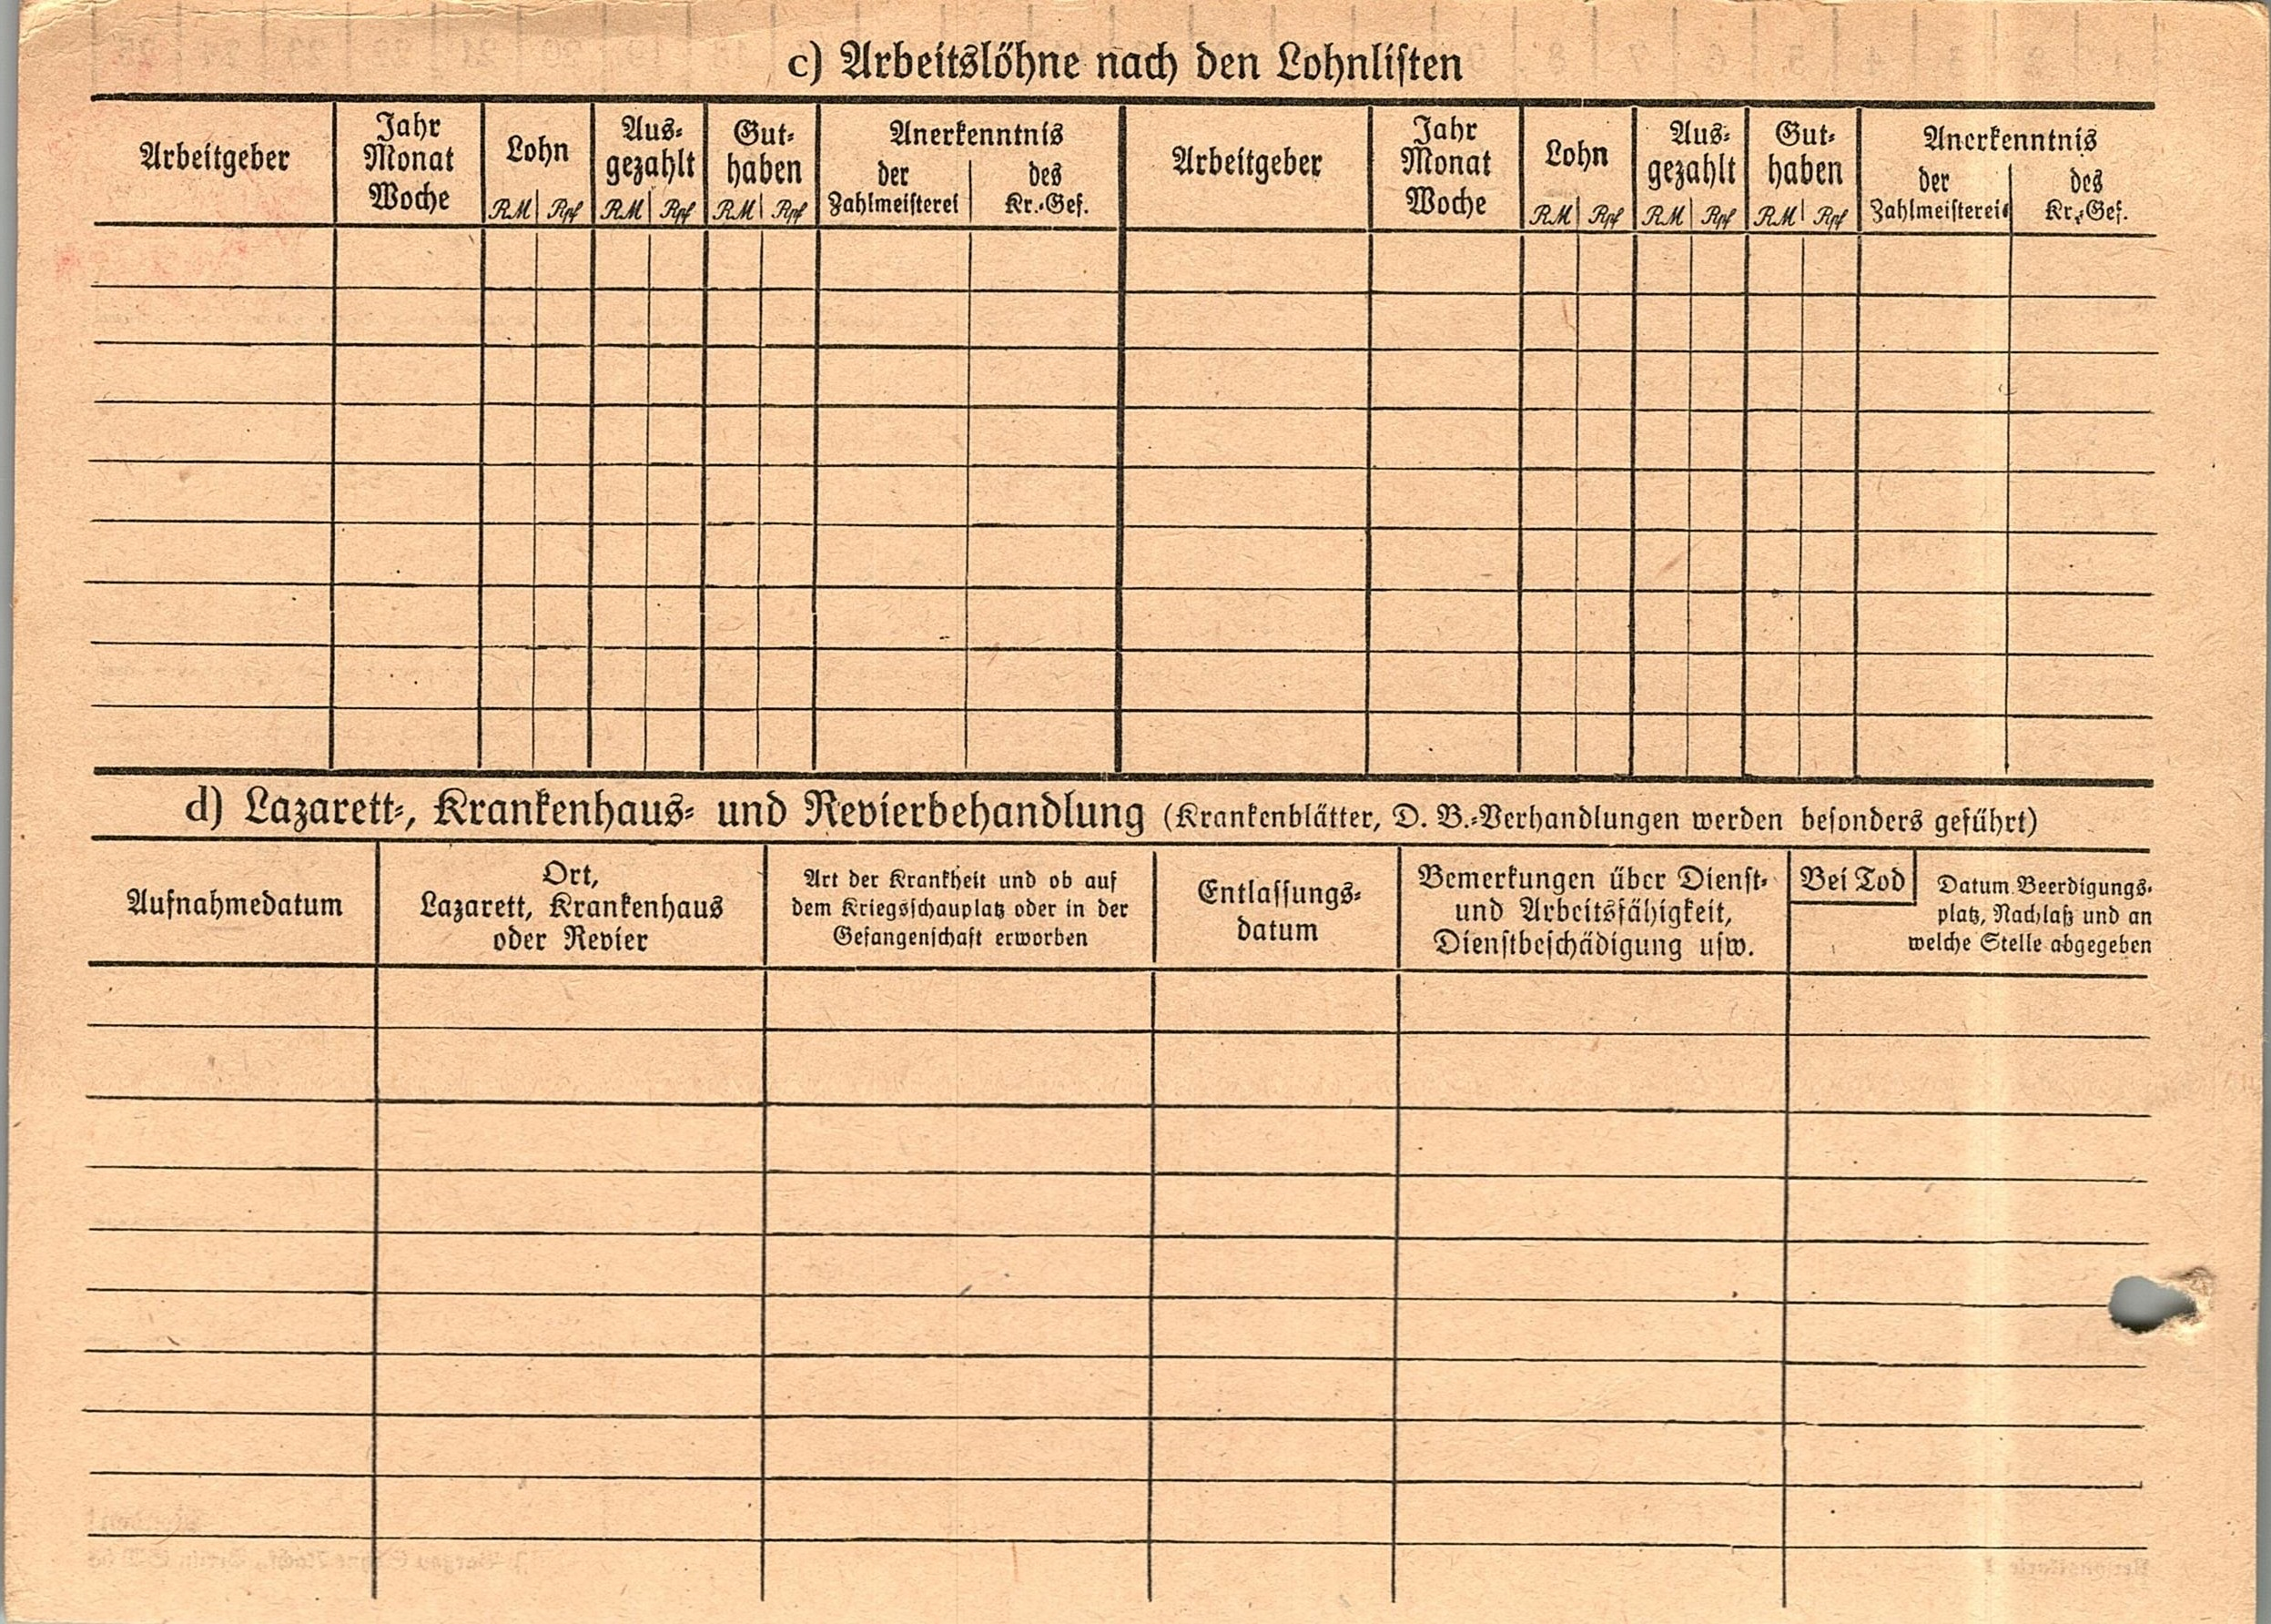 c) Arbeitslöhne nach den Lohnlisten
Arbeitgeber
Jahr
Monat
Woche
Lohn
RM Rpf
Aus-
gezahlt
RM Rpf
Gut-
haben
RM Rpf
Anerkenntnis
der
Zahlmeisterei
des
Kr.-Gef.
Arbeitgeber
Jahr
Monat
Woche
Lohn
RM Rpf
Aus-
gezahlt
RM Rpf
Gut-
haben
RM Rpf
Anerkenntnis
der
Zahlmeisterei
des
Kr.-Gef.
d) Lazarett-, Krankenhaus- und Revierbehandlung (Krankenblätter, D. B.-Verhandlungen werden besonders geführt)
Aufnahmedatum
Ort,
Lazarett, Krankenhaus
oder Revier
Art der Krankheit und ob auf
dem Kriegsschauplatz oder in der
Gefangenschaft erworben
Entlassungs-
datum
Bemerkungen über Dienst-
und Arbeitsfähigkeit,
Dienstbeschädigung usw.
Bei Tod
Datum Beerdigungs-
platz, Nachlaß und an
welche Stelle abgegeben